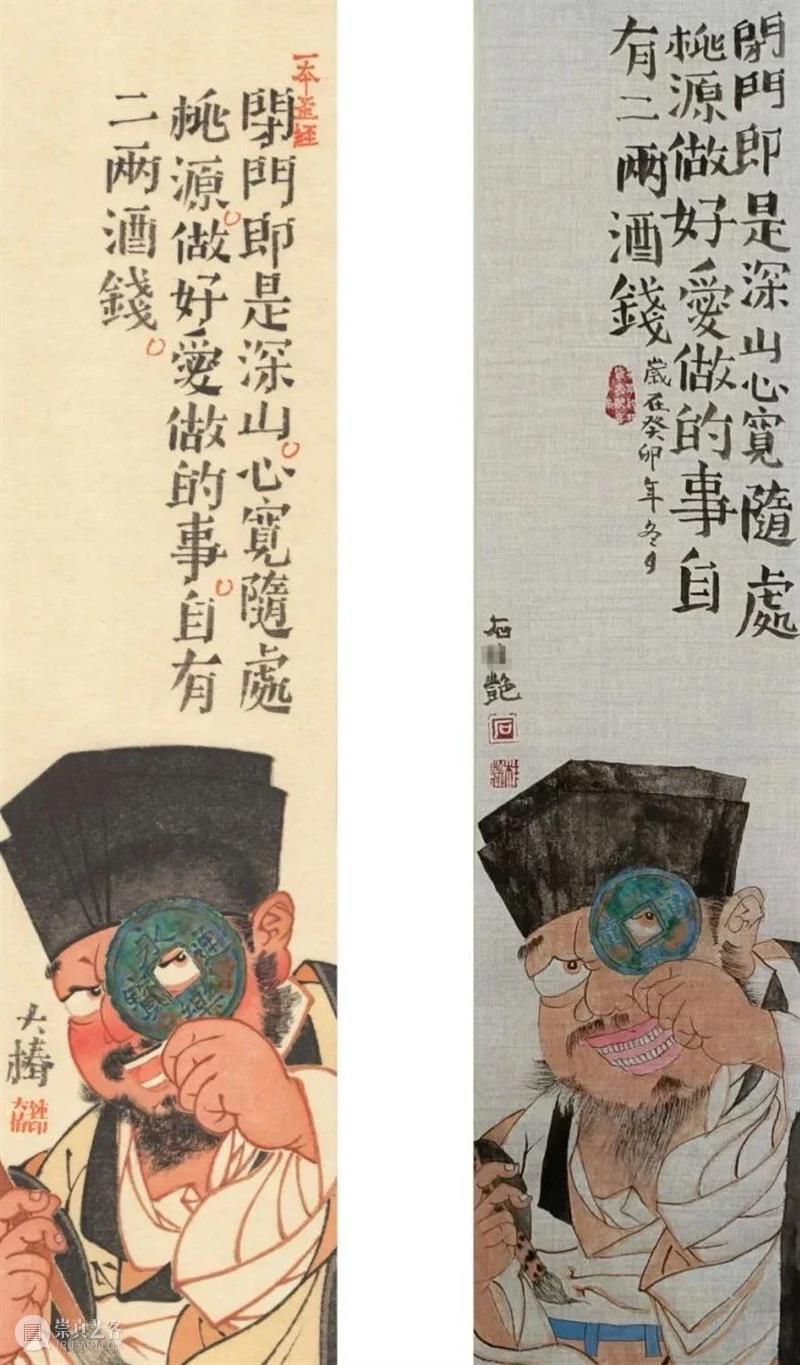 一本歪經
閉門即是深山心寬隨處
桃源做好愛做的事自有
二兩酒錢
永樂通寶
大椿
閉門即是深山心寬隨處
桃源做好愛做的事自
有二兩酒錢
歲在癸卯年冬月
石
艷
石
崇真艺客